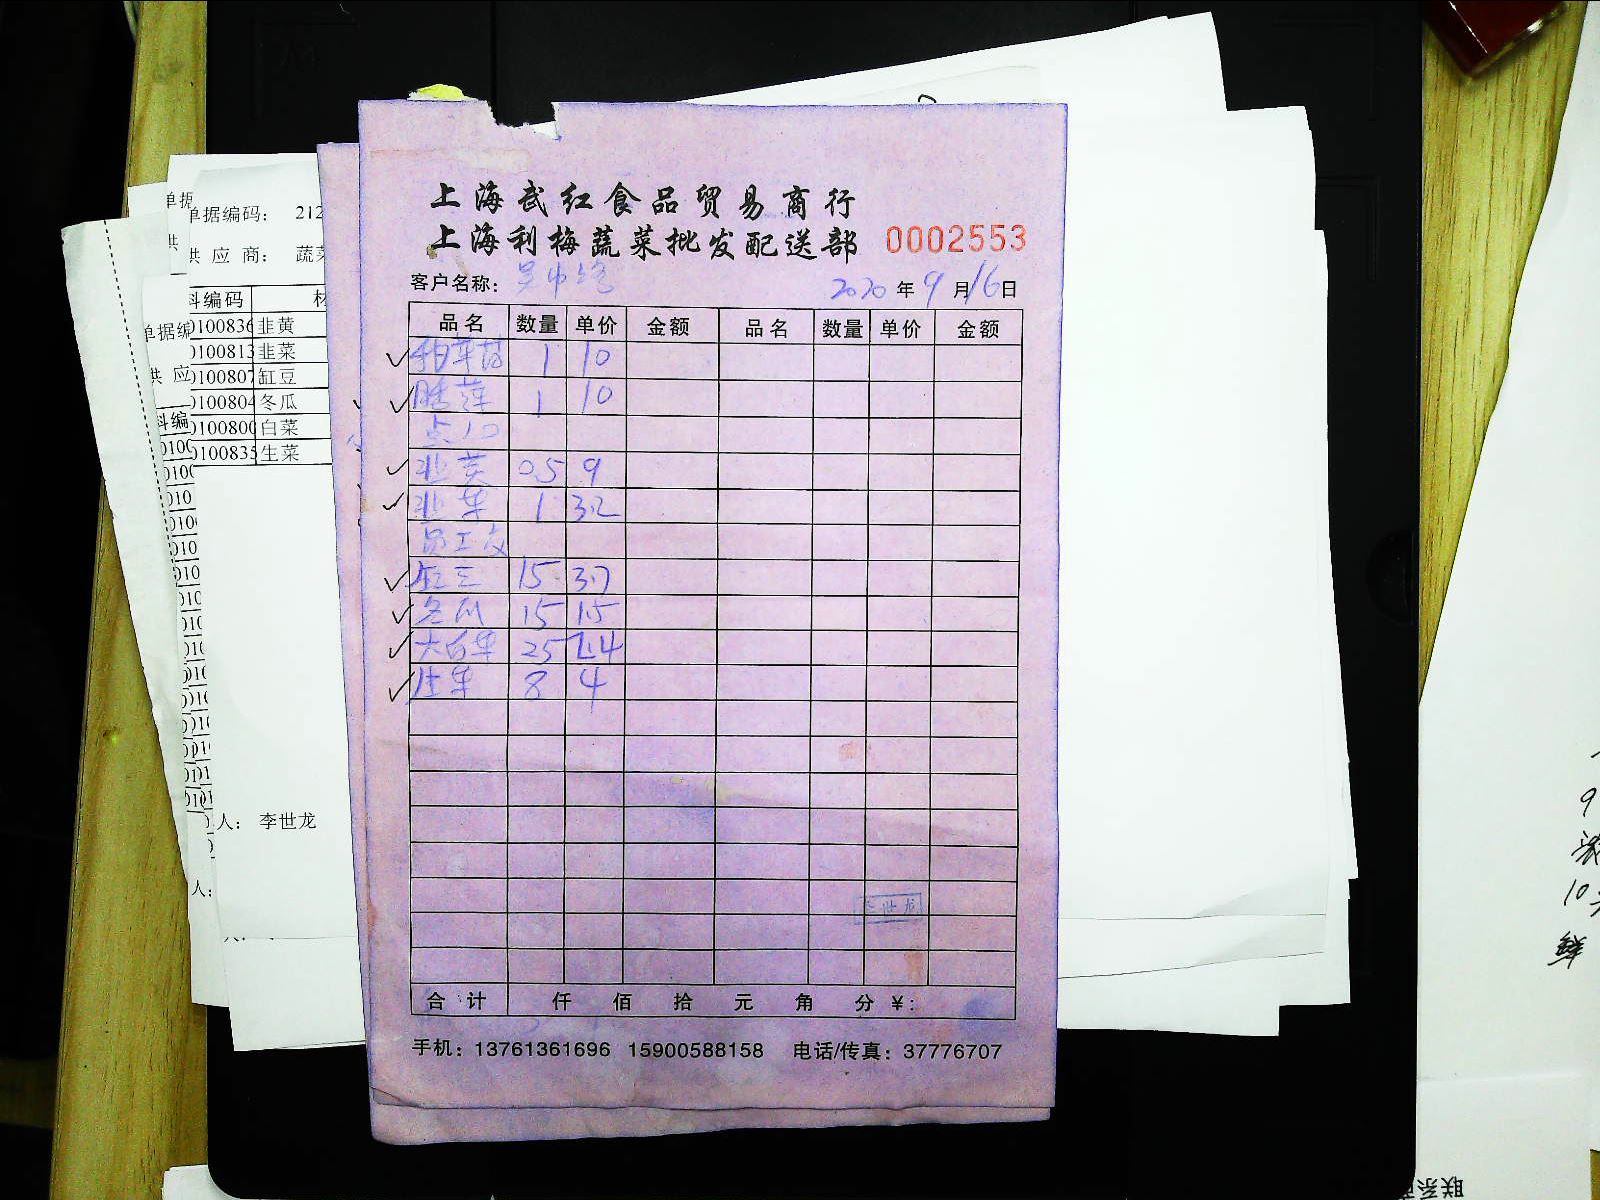 上海武红食品贸易商行
上海利梅蔬菜批发配送部 0002553
客户名称: 2020年9月16日
品名 数量 单价 金额 品名 数量 单价 金额
1 10
1 10
点心
韭黄 0.5 9
韭菜 1 3.2
员工餐
缸豆 15 3.7
冬瓜 15 1.5
大白菜 25 1.4
生菜 8 4
李世龙
合计 仟 佰 拾 元 角 分 ¥:
手机: 13761361696 15900588158 电话/传真: 37776707
单据
单据编码: 212
供应商: 蔬菜
料编码 材
0100836 韭黄
0100813 韭菜
0100807 缸豆
0100804 冬瓜
0100800 白菜
0100835 生菜
人: 李世龙
单据编
供应
料编
人:
9
10
联系